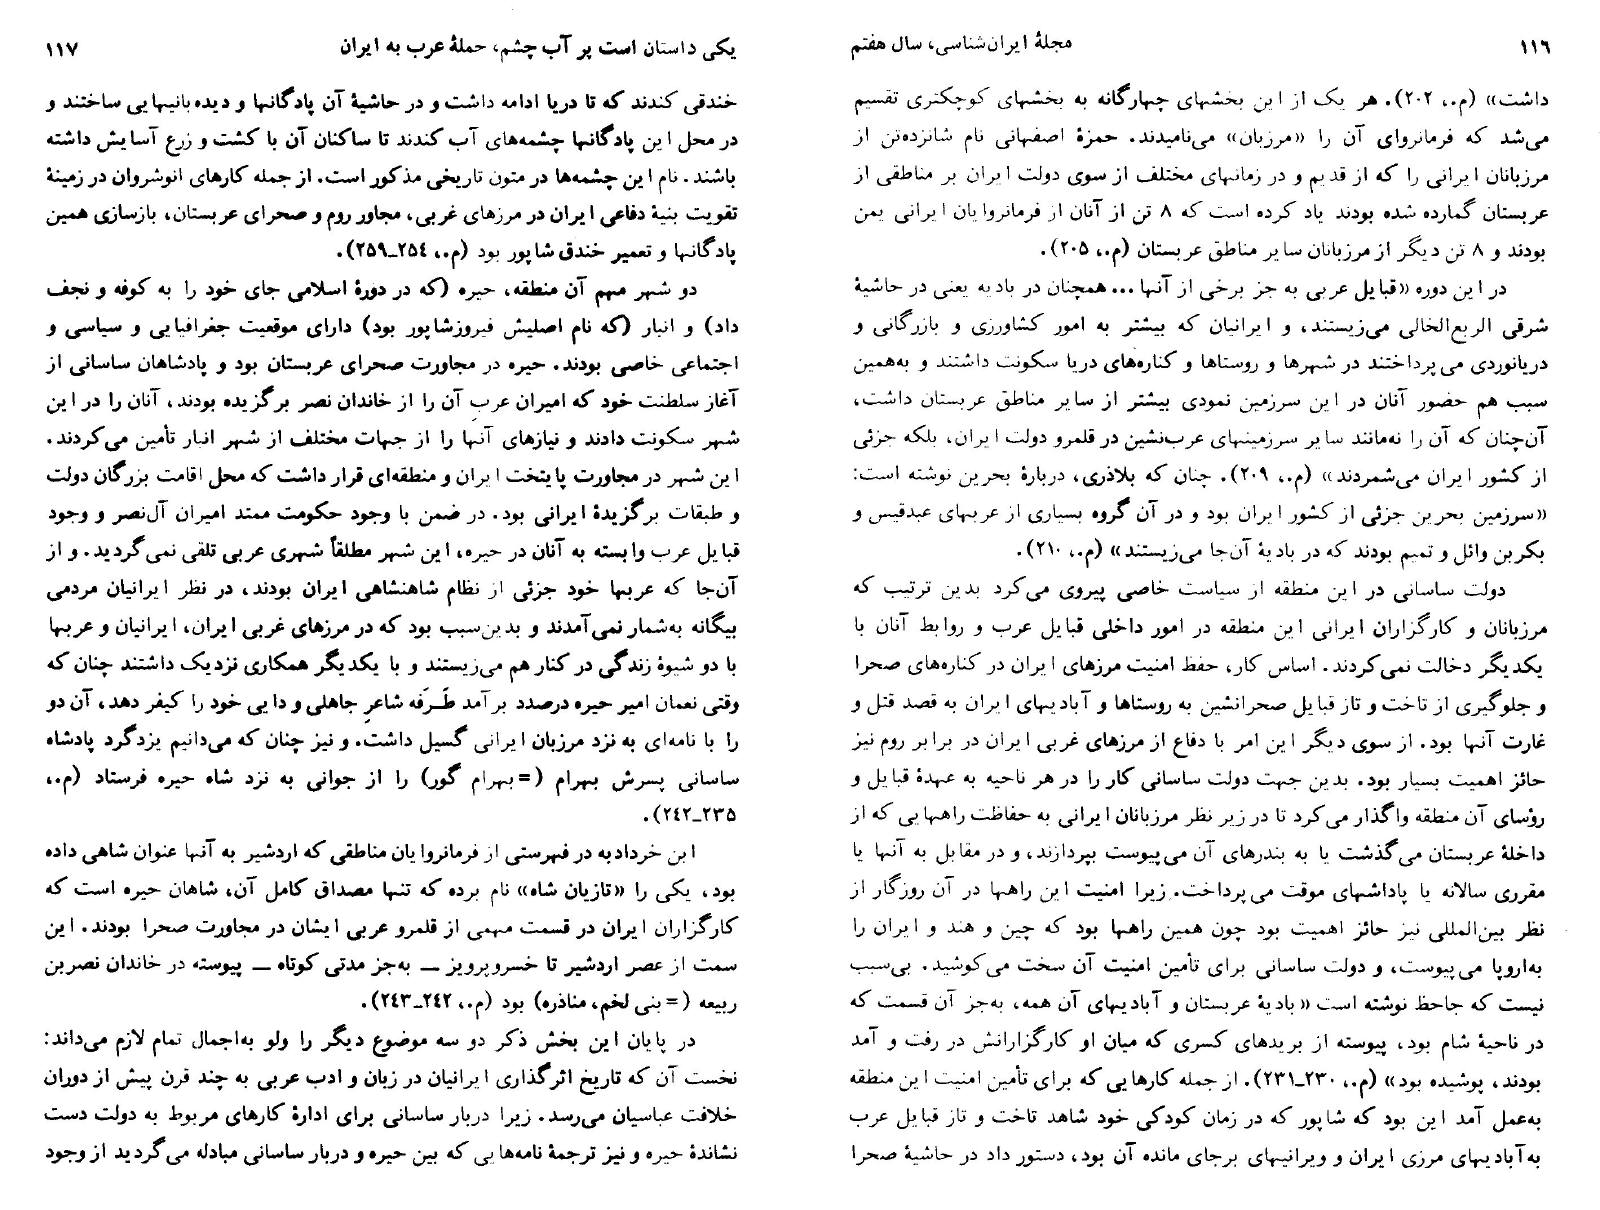 ۱۱۶
مجلهٔ ایران‌شناسی، سال هفتم
داشت» (م.، ۲۰۲). هر یک از این بخشهای چهارگانه به بخشهای کوچکتری تقسیم
می‌شد که فرمانروای آن را «مرزبان» می‌نامیدند. حمزهٔ اصفهانی نام شانزده‌تن از
مرزبانان ایرانی را که از قدیم و در زمانهای مختلف از سوی دولت ایران بر مناطقی از
عربستان گمارده شده بودند یاد کرده است که ۸ تن از آنان از فرمانروایان ایرانی یمن
بودند و ۸ تن دیگر از مرزبانان سایر مناطق عربستان (م.، ۲۰۵).
در این دوره «قبایل عربی به جز برخی از آنها ... همچنان در بادیه یعنی در حاشیهٔ
شرقی الربع‌الخالی می‌زیستند، و ایرانیان که بیشتر به امور کشاورزی و بازرگانی و
دریانوردی می‌پرداختند در شهرها و روستاها و کناره‌های دریا سکونت داشتند و به‌همین
سبب هم حضور آنان در این سرزمین نمودی بیشتر از سایر مناطق عربستان داشت،
آن‌چنان که آن را نه‌مانند سایر سرزمینهای عرب‌نشین در قلمرو دولت ایران، بلکه جزئی
از کشور ایران می‌شمردند» (م.، ۲۰۹). چنان که بلاذری، دربارهٔ بحرین نوشته است:
«سرزمین بحرین جزئی از کشور ایران بود و در آن گروه بسیاری از عربهای عبدقیس و
بکربن وائل و تمیم بودند که در بادیهٔ آن‌جا می‌زیستند» (م.، ۲۱۰).
دولت ساسانی در این منطقه از سیاست خاصی پیروی می‌کرد بدین ترتیب که
مرزبانان و کارگزاران ایرانی این منطقه در امور داخلی قبایل عرب و روابط آنان با
یکدیگر دخالت نمی‌کردند. اساس کار، حفظ امنیت مرزهای ایران در کناره‌های صحرا
و جلوگیری از تاخت و تاز قبایل صحرانشین به روستاها و آبادیهای ایران به قصد قتل و
غارت آنها بود. از سوی دیگر این امر با دفاع از مرزهای غربی ایران در برابر روم نیز
حائز اهمیت بسیار بود. بدین جهت دولت ساسانی کار را در هر ناحیه به عهدهٔ قبایل و
رؤسای آن منطقه واگذار می‌کرد تا در زیر نظر مرزبانان ایرانی به حفاظت راههایی که از
داخلهٔ عربستان می‌گذشت یا به بندرهای آن می‌پیوست بپردازند، و در مقابل به آنها یا
مقرری سالانه یا پاداشهای موقت می‌پرداخت. زیرا امنیت این راهها در آن روزگار از
نظر بین‌المللی نیز حائز اهمیت بود چون همین راهها بود که چین و هند و ایران را
به‌اروپا می‌پیوست، و دولت ساسانی برای تأمین امنیت آن سخت می‌کوشید. بی‌سبب
نیست که جاحظ نوشته است «بادیهٔ عربستان و آبادیهای آن همه، به‌جز آن قسمت که
در ناحیهٔ شام بود، پیوسته از بریدهای کسری که میان او کارگزارانش در رفت و آمد
بودند، پوشیده بود» (م.، ۲۳۰ـ۲۳۱). از جمله کارهایی که برای تأمین امنیت این منطقه
به‌عمل آمد این بود که شاپور که در زمان کودکی خود شاهد تاخت و تاز قبایل عرب
به‌آبادیهای مرزی ایران و ویرانیهای برجای مانده آن بود، دستور داد در حاشیهٔ صحرا
یکی داستان است پر آب چشم، حملهٔ عرب به ایران
۱۱۷
خندقی کندند که تا دریا ادامه داشت و در حاشیهٔ آن پادگانها و دیده‌بانیهایی ساختند و
در محل این پادگانها چشمه‌های آب کندند تا ساکنان آن با کشت و زرع آسایش داشته
باشند. نام این چشمه‌ها در متون تاریخی مذکور است. از جمله کارهای انوشروان در زمینهٔ
تقویت بنیهٔ دفاعی ایران در مرزهای غربی، مجاور روم و صحرای عربستان، بازسازی همین
پادگانها و تعمیر خندق شاپور بود (م.، ۲۵۴ـ۲۵۹).
دو شهر مهم آن منطقه، حیره (که در دورهٔ اسلامی جای خود را به کوفه و نجف
داد) و انبار (که نام اصلیش فیروزشاپور بود) دارای موقعیت جغرافیایی و سیاسی و
اجتماعی خاصی بودند. حیره در مجاورت صحرای عربستان بود و پادشاهان ساسانی از
آغاز سلطنت خود که امیران عربِ آن را از خاندان نصر برگزیده بودند، آنان را در این
شهر سکونت دادند و نیازهای آنها را از جهات مختلف از شهر انبار تأمین می‌کردند.
این شهر در مجاورت پایتخت ایران و منطقه‌ای قرار داشت که محل اقامت بزرگان دولت
و طبقات برگزیدهٔ ایرانی بود. در ضمن با وجود حکومت ممتد امیران آل‌نصر و وجود
قبایل عرب وابسته به آنان در حیره، این شهر مطلقاً شهری عربی تلقی نمی‌گردید. و از
آن‌جا که عربها خود جزئی از نظام شاهنشاهی ایران بودند، در نظر ایرانیان مردمی
بیگانه به‌شمار نمی‌آمدند و بدین‌سبب بود که در مرزهای غربی ایران، ایرانیان و عربها
با دو شیوهٔ زندگی در کنار هم می‌زیستند و با یکدیگر همکاری نزدیک داشتند چنان که
وقتی نعمان امیر حیره درصدد برآمد طَـرَفه شاعرِ جاهلی و دایی خود را کیفر دهد، آن دو
را با نامه‌ای به نزد مرزبان ایرانی گسیل داشت. و نیز چنان که می‌دانیم یزدگرد پادشاه
ساسانی پسرش بهرام (= بهرام گور) را از جوانی به نزد شاه حیره فرستاد (م.،
۲۳۵ـ۲۴۲).
ابن خردادبه در فهرستی از فرمانروایان مناطقی که اردشیر به آنها عنوان شاهی داده
بود، یکی را «تازیان شاه» نام برده که تنها مصداق کامل آن، شاهان حیره است که
کارگزاران ایران در قسمت مهمی از قلمرو عربی ایشان در مجاورت صحرا بودند. این
سمت از عصر اردشیر تا خسروپرویز ــ به‌جز مدتی کوتاه ــ پیوسته در خاندان نصربن
ربیعه (= بنی لخم، مناذره) بود (م.، ۲۴۲ـ۲۴۳).
در پایان این بخش ذکر دو سه موضوع دیگر را ولو به‌اجمال تمام لازم می‌داند:
نخست آن که تاریخ اثرگذاری ایرانیان در زبان و ادب عربی به چند قرن پیش از دوران
خلافت عباسیان می‌رسد. زیرا دربار ساسانی برای ادارهٔ کارهای مربوط به دولت دست
نشاندهٔ حیره و نیز ترجمهٔ نامه‌هایی که بین حیره و دربار ساسانی مبادله می‌گردید از وجود